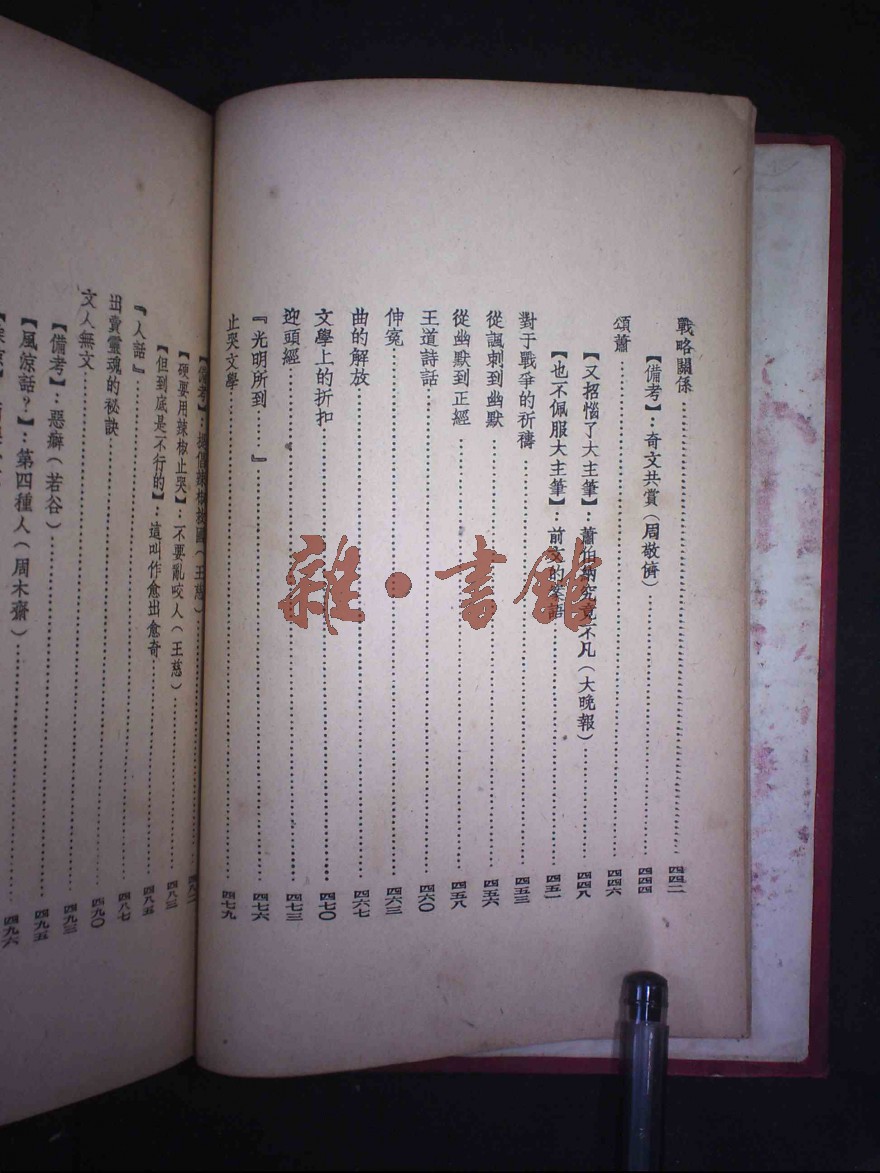 戰略關係……四四二
【備考】：奇文共賞（周敬儕）……四四四
頌蕭……四四六
【又招惱了大主筆】：蕭伯納究竟不凡（大晚報）……四四八
【也不佩服大主筆】：前文的案語……四五一
對于戰爭的祈禱……四五三
從諷刺到幽默……四五六
從幽默到正經……四五八
王道詩話……四六〇
伸冤……四六三
曲的解放……四六七
文學上的折扣……四七〇
迎頭經……四七三
『光明所到……』……四七六
止哭文學……四七九
【備考】：提倡辣椒救國（王慈）……四八二
【硬要用辣椒止哭】：不要亂咬人（王慈）……四八三
【但到底是不行的】：這叫作愈出愈奇……四八五
『人話』……四八七
出賣靈魂的秘訣……四九〇
文人無文……四九三
【備考】：惡癖（若谷）……四九五
【風涼話？】：第四種人（周木齋）……四九六
雜·書館